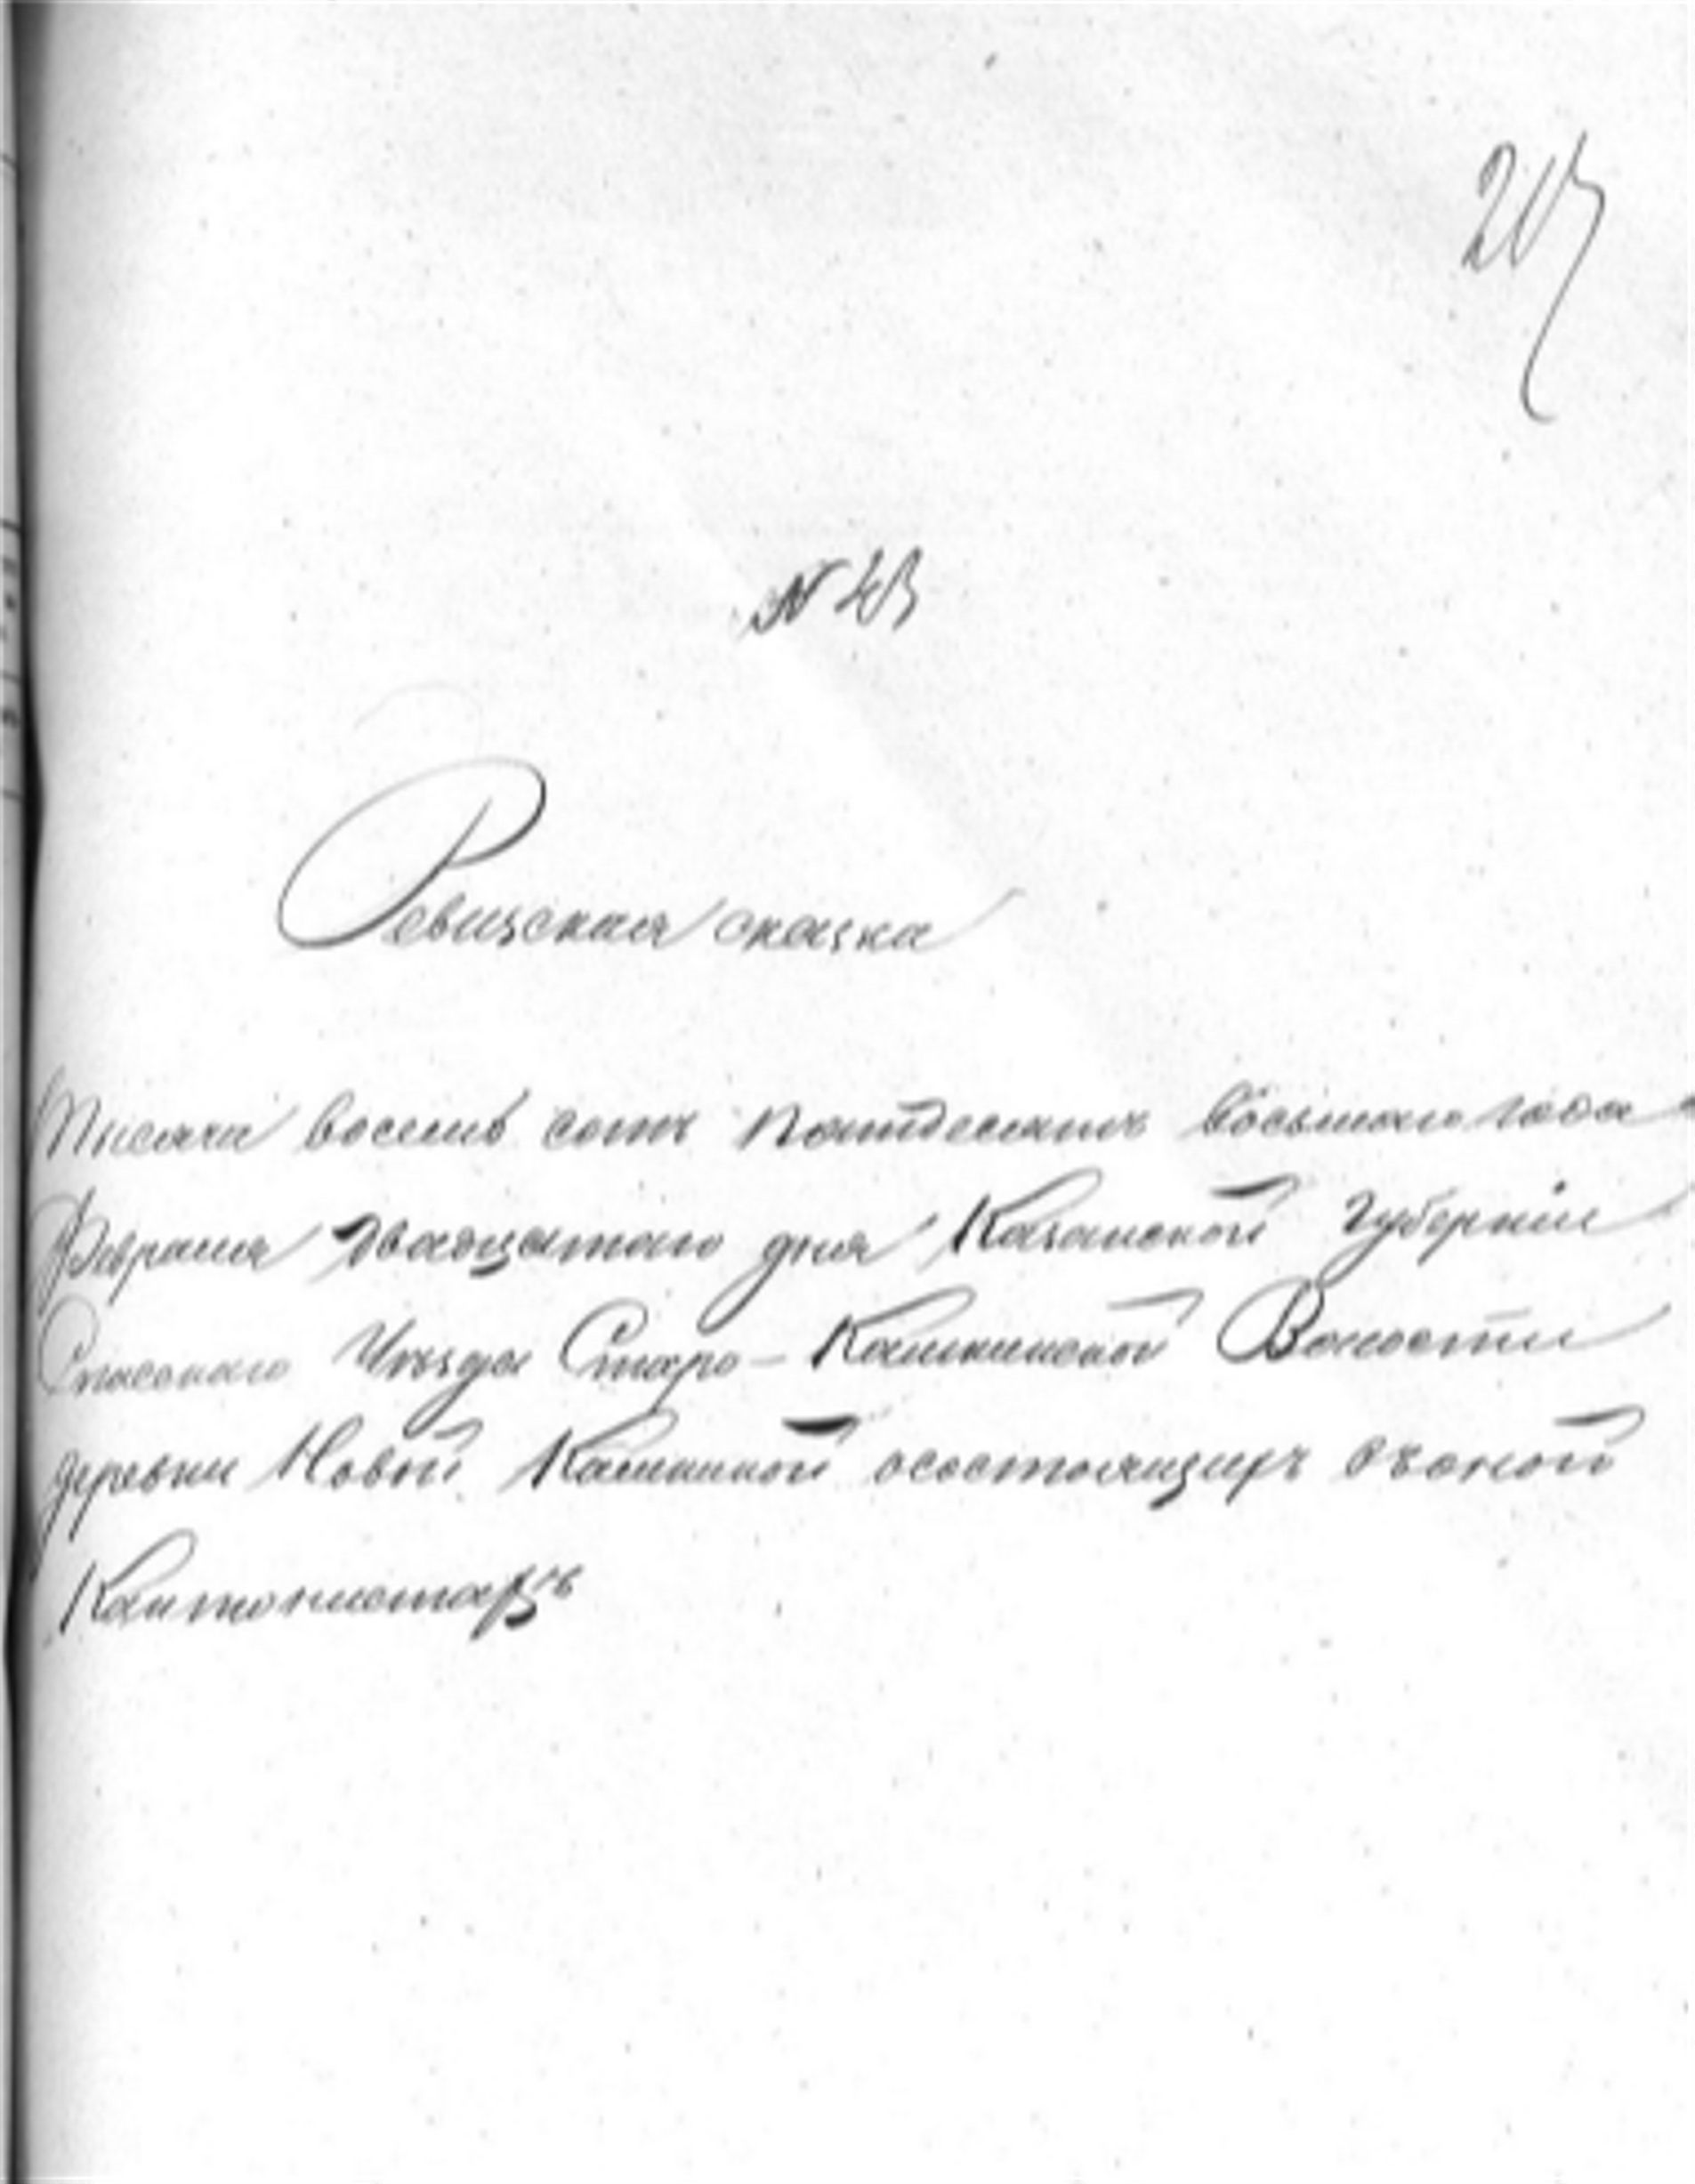 207
№ 43
Ревизская сказка
Тысяча восемь сотъ пятдесятъ восьмаго года
Февраля двадцатаго дня Казанской Губерніи
Спаскаго Уѣзда Старо-Камкинской Волости
деревни Новой Камкиной осостоящихъ въоной
Кантонистахъ